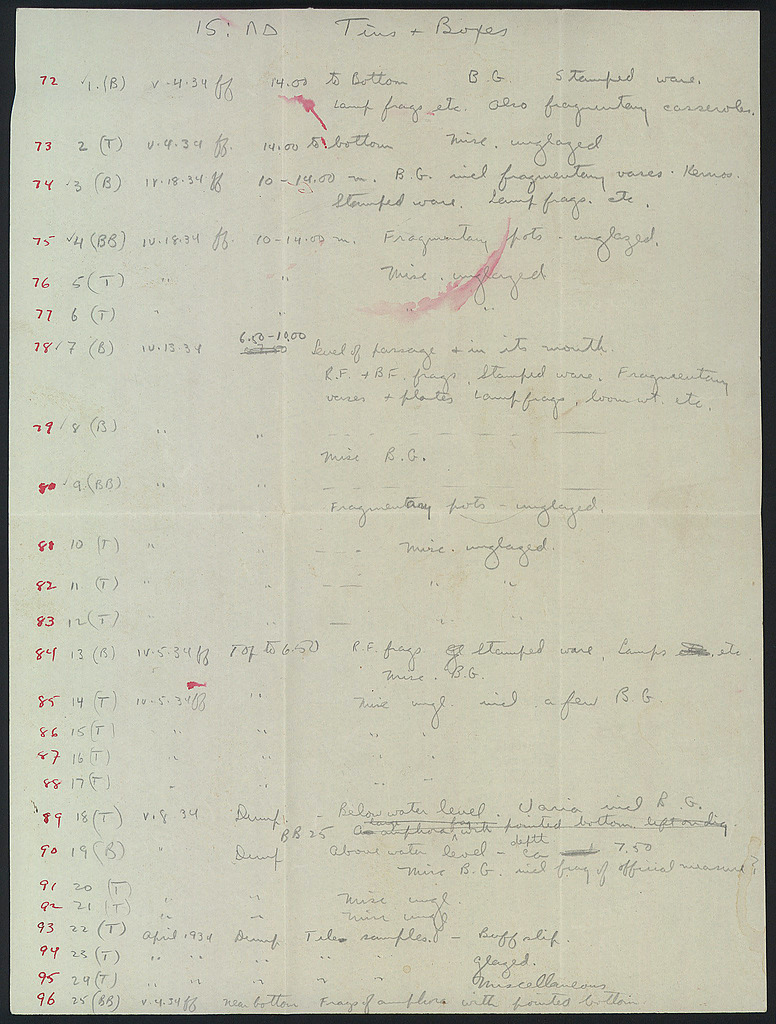 15: ΛΔ Tins + Boxes
72 √1. (B) V-4-34 ff 14.00 to Bottom B.G. Stamped ware.
Lamp frags etc. also fragmentary casseroles.
73 2 (T) V-4-34 ff. 14.00 to bottom Misc. unglazed
74 √3 (B) IV.18.34 ff 10-14.00 m. B.G. incl fragmentary vases. Kernos.
Stamped ware. Lamp frags. etc.
75 √4 (BB) IV.18.34 ff. 10-14.00 m. Fragmentary pots - unglazed.
76 5 (T) " " Misc. unglazed
77 6 (T) " " " "
78 √7 (B) IV.13.34 6.50-10.00 Level of passage + in its mouth.
R.F. + B.F. frags, Stamped ware. Fragmentary
vases + plates Lamp frags, loom wt. etc.
79 √8 (B) " " — — —
Misc B.G.
80 √9. (BB) " " — — —
Fragmentary pots - unglazed.
81 10 (T) " " - - Misc. unglazed.
82 11 (T) " " - — " "
83 12 (T) " " — " "
84 13 (B) IV.5.34 ff Top to 6.50 R.F. frags Stamped ware, Lamps etc
Misc. B.G.
85 14 (T) IV.5.34 ff " Misc ungl. incl. a few B.G.
86 15 (T) " " " "
87 16 (T) " " " "
88 17 (T) " " " "
89 18 (T) V.8.34 Dump. - Below water level. Varia incl B.G.
BB 25 amphora with pointed bottom left on dig.
90 19 (B) " Dump Above water level - depth ca 7.50
Misc B.G. incl frag of official measure?
91 20 (T) " " Misc ungl.
92 21 (T) " " Misc ungl
93 22 (T) April 1934 Dump Tile samples. - Buff slip.
94 23 (T) " " " " " glazed.
95 24 (T) " " " " " Miscellaneous
96 25 (BB) V.4.34 ff near bottom Frags of amphora with pointed bottom